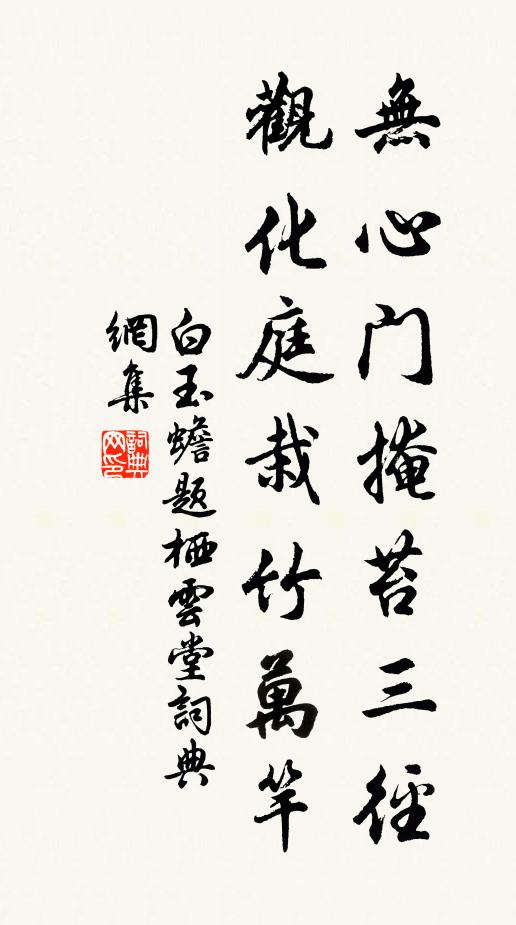 無心門掩苔三徑
觀化庭栽竹萬竿
白玉蟾題栖雲堂詞典
網集
詞典
网印